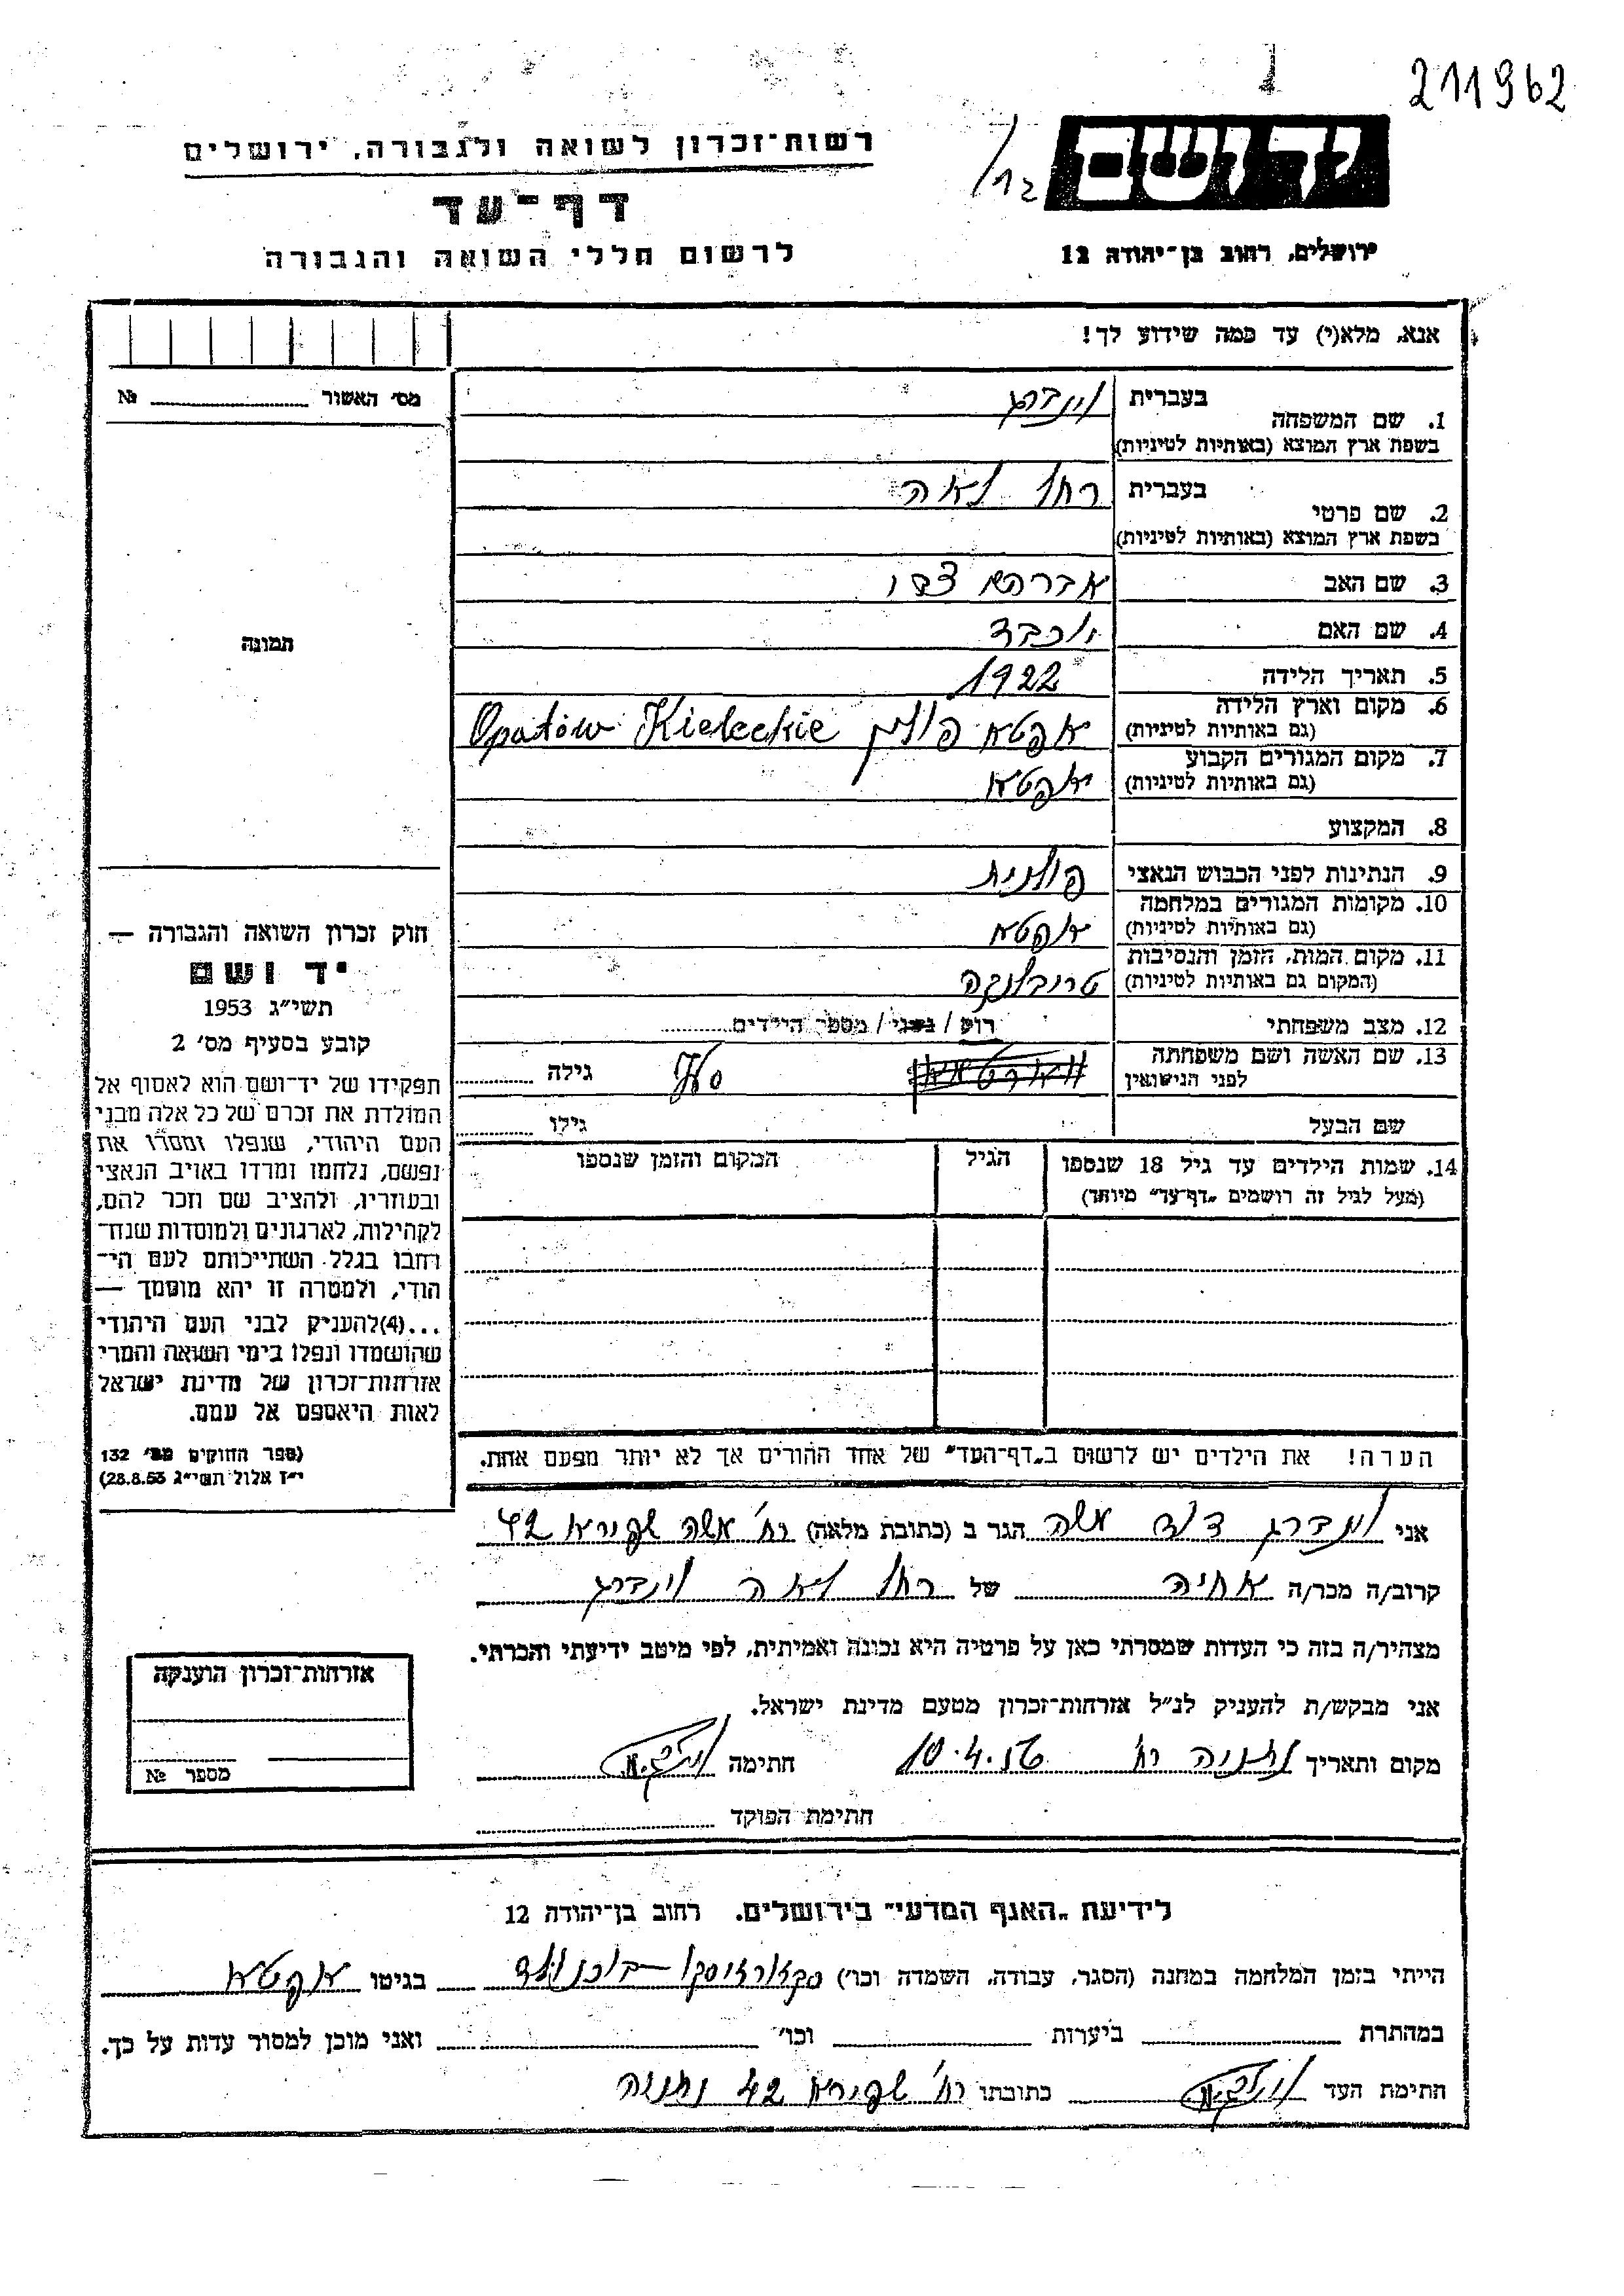 211962
יד ושם
רשות־זכרון לשואה ולגבורה, ירושלים
דף־עד
לרשום חללי השואה והגבורה
ירושלים, רחוב בן־יהודה 12
אנא, מלא(י) עד כמה שידוע לך!
מס׳ האשור № 
1. שם המשפחה בעברית
בשפת ארץ המוצא (באותיות לטיניות)
2. שם פרטי בעברית רחל לאה
בשפת ארץ המוצא (באותיות לטיניות)
3. שם האב אברהם
4. שם האם יוכבד
5. תאריך הלידה 1922
6. מקום וארץ הלידה אפטא פולין Opatów Kieleckie
(גם באותיות לטיניות)
7. מקום המגורים הקבוע אפטא
(גם באותיות לטיניות)
8. המקצוע
9. הנתינות לפני הכבוש הנאצי פולנית
10. מקומות המגורים במלחמה אפטא
(גם באותיות לטיניות)
11. מקום המות, הזמן והנסיבות טרבלינקה
(המקום גם באותיות לטיניות)
12. מצב משפחתי רווק / נשוי / מספר הילדים
13. שם האשה ושם משפחתה גילה
לפני הנישואין
שם הבעל גילו
14. שמות הילדים עד גיל 18 שנספו הגיל המקום והזמן שנספו
(מעל לגיל זה רושמים „דף־עד״ מיוחד)
הערה! את הילדים יש לרשום ב„דף־העד״ של אחד ההורים אך לא יותר מפעם אחת.
תמונה
חוק זכרון השואה והגבורה —
יד ושם
תשי״ג 1953
קובע בסעיף מס׳ 2
תפקידו של יד־ושם הוא לאסוף אל
המולדת את זכרם של כל אלה מבני
העם היהודי, שנפלו ומסרו את
נפשם, נלחמו ומרדו באויב הנאצי
ובעוזריו, ולהציב שם וזכר להם,
לקהילות, לארגונים ולמוסדות שנח־
רבו בגלל השתייכותם לעם הי־
הודי, ולמטרה זו יהא מוסמך —
...(4)להעניק לבני העם היהודי
שהושמדו ונפלו בימי השואה והמרי
אזרחות־זכרון של מדינת ישראל
לאות היאספם אל עמם.
(ספר החוקים מס׳ 132
י״ז אלול תשי״ג 28.8.53)
אני דוד משה הגר ב (כתובת מלאה) רח׳ משה שפירא 42
קרוב/ה מכר/ה אחיה של רחל לאה
מצהיר/ה בזה כי העדות שמסרתי כאן על פרטיה היא נכונה ואמיתית, לפי מיטב ידיעתי והכרתי.
אני מבקש/ת להעניק לנ״ל אזרחות־זכרון מטעם מדינת ישראל.
מקום ותאריך נתניה 10.4.56 חתימה
חתימת הפוקד
אזרחות־זכרון הוענקה
מספר №
לידיעת „האגף המדעי״ בירושלים. רחוב בן־יהודה 12
הייתי בזמן המלחמה במחנה (הסגר, עבודה, השמדה וכו׳) בגיטו אפטא
במחתרת ביערות וכו׳ ואני מוכן למסור עדות על כך.
חתימת העד כתובתו רח׳ שפירא 42 נתניה